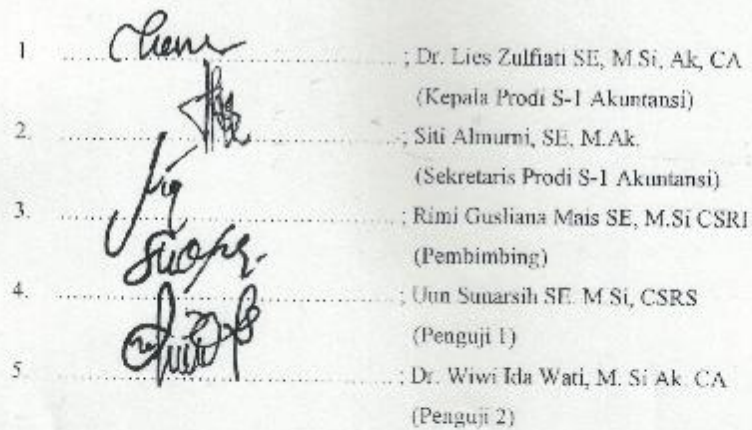 1 ; Dr. Lies Zulfiati SE, M.Si, Ak, CA
(Kepala Prodi S-1 Akuntansi)
2. ; Siti Almurni, SE, M.Ak.
(Sekretaris Prodi S-1 Akuntansi)
3. ; Rimi Gusliana Mais SE, M.Si CSRI
(Pembimbing)
4. ; Uun Sunarsih SE. M.Si, CSRS
(Penguji 1)
5. ; Dr. Wiwi Ida Wati, M. Si Ak. CA
(Penguji 2)